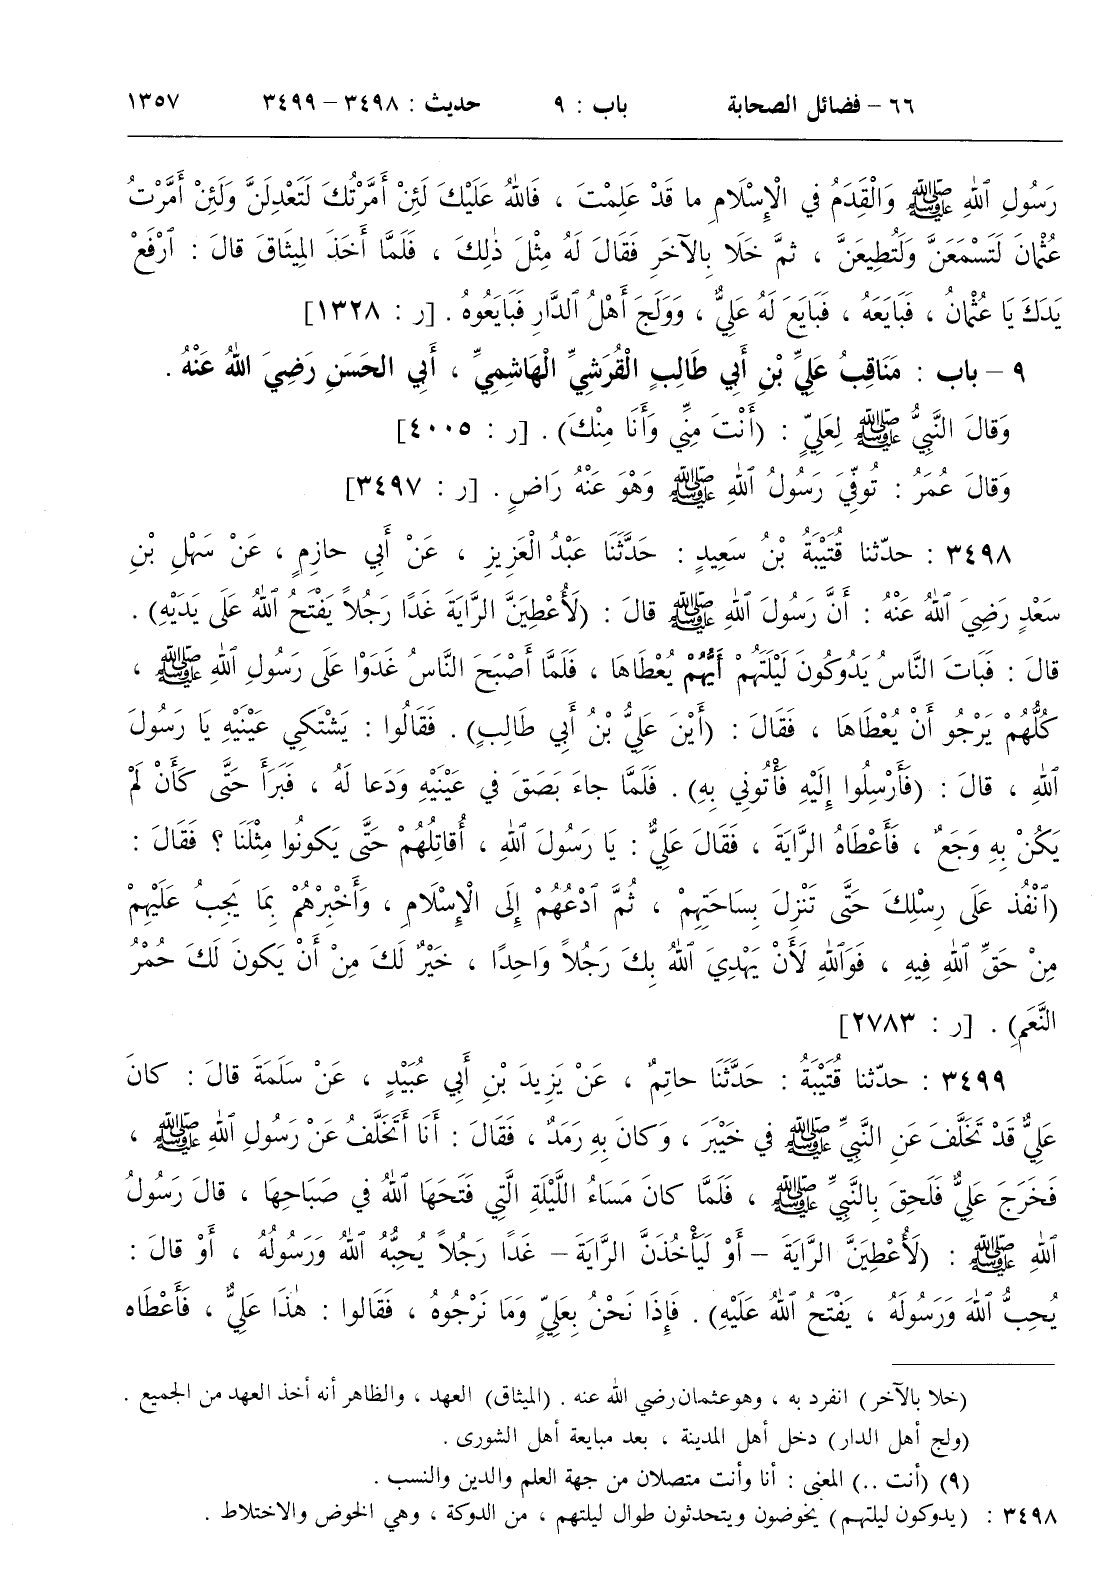 ٦٦ – فضائل الصحابة باب : ٩ حديث : ٣٤٩٨ – ٣٤٩٩ ١٣٥٧
رَسُولِ ٱللهِ ﷺ وَالْقِدَمُ في الْإِسْلَامِ ما قَدْ عَلِمْتَ ، فَاللهُ عَلَيْكَ لَئِنْ أَمَّرْتُكَ لَتَعْدِلَنَّ وَلَئِنْ أَمَّرْتُ
عُثْمانَ لَتَسْمَعَنَّ وَلَتُطِيعَنَّ ، ثمَّ خَلَا بِالآخَرِ فَقَالَ لَهُ مِثْلَ ذٰلِكَ ، فَلَمَّا أَخَذَ المِيثَاقَ قالَ : ٱرْفَعْ
يَدَكَ يَا عُثْمانُ ، فَبَايَعَهُ ، فَبَايَعَ لَهُ عَلِيٌّ ، وَوَلَجَ أَهْلُ ٱلدَّارِ فَبَايَعُوهُ . [ر : ١٣٢٨]
٩ – باب : مَنَاقِبُ عَلِيِّ بْنِ أَبي طَالِبٍ الْقُرَشِيِّ الْهَاشِمِيِّ ، أَبي الحَسَنِ رَضِيَ اللهُ عَنْهُ .
وَقالَ النَّبِيُّ ﷺ لِعَلِيٍّ : (أَنْتَ مِنِّي وَأَنَا مِنْكَ) . [ر : ٤٠٠٥]
وَقالَ عُمَرُ : تُوفِّيَ رَسُولُ ٱللهِ ﷺ وَهْوَ عَنْهُ رَاضٍ . [ر : ٣٤٩٧]
٣٤٩٨ : حدّثنا قُتَيْبَةُ بْنُ سَعِيدٍ : حَدَّثَنَا عَبْدُ الْعَزِيزِ ، عَنْ أَبي حازِمٍ ، عَنْ سَهْلِ بْنِ
سَعْدٍ رَضِيَ ٱللهُ عَنْهُ : أَنَّ رَسُولَ ٱللهِ ﷺ قالَ : (لَأُعْطِيَنَّ الرَّايَةَ غَدًا رَجُلاً يَفْتَحُ ٱللهُ عَلَى يَدَيْهِ) .
قالَ : فَبَاتَ النَّاسُ يَدُوكُونَ لَيْلَتَهُمْ أَيُّهُمْ يُعْطَاهَا ، فَلَمَّا أَصْبَحَ النَّاسُ غَدَوْا عَلَى رَسُولِ ٱللهِ ﷺ ،
كُلُّهُمْ يَرْجُو أَنْ يُعْطَاهَا ، فَقَالَ : (أَيْنَ عَلِيُّ بْنُ أَبي طَالِبٍ) . فَقَالُوا : يَشْتَكِي عَيْنَيْهِ يَا رَسُولَ
ٱللهِ ، قالَ : (فَأَرْسِلُوا إِلَيْهِ فَأْتُونِي بِهِ) . فَلَمَّا جاءَ بَصَقَ في عَيْنَيْهِ وَدَعا لَهُ ، فَبَرَأَ حَتَّى كَأَنْ لَمْ
يَكُنْ بِهِ وَجَعٌ ، فَأَعْطَاهُ الرَّايَةَ ، فَقَالَ عَلِيٌّ : يَا رَسُولَ ٱللهِ ، أُقَاتِلُهُمْ حَتَّى يَكُونُوا مِثْلَنَا ؟ فَقَالَ :
(ٱنْفُذْ عَلَى رِسْلِكَ حَتَّى تَنْزِلَ بِسَاحَتِهِمْ ، ثُمَّ ٱدْعُهُمْ إِلَى الْإِسْلَامِ ، وَأَخْبِرْهُمْ بِمَا يَجِبُ عَلَيْهِمْ
مِنْ حَقِّ ٱللهِ فِيهِ ، فَوَٱللهِ لَأَنْ يَهْدِيَ ٱللهُ بِكَ رَجُلاً وَاحِدًا ، خَيْرٌ لَكَ مِنْ أَنْ يَكُونَ لَكَ حُمْرُ
النَّعَمِ) . [ر : ٢٧٨٣]
٣٤٩٩ : حدّثنا قُتَيْبَةُ : حَدَّثَنَا حاتِمٌ ، عَنْ يَزِيدَ بْنِ أَبي عُبَيْدٍ ، عَنْ سَلَمَةَ قالَ : كانَ
عَلِيٌّ قَدْ تَخَلَّفَ عَنِ النَّبِيِّ ﷺ في خَيْبَرَ ، وَكانَ بِهِ رَمَدٌ ، فَقَالَ : أَنَا أَتَخَلَّفُ عَنْ رَسُولِ ٱللهِ ﷺ ،
فَخَرَجَ عَلِيٌّ فَلَحِقَ بِالنَّبِيِّ ﷺ ، فَلَمَّا كانَ مَسَاءُ اللَّيْلَةِ الَّتِي فَتَحَهَا ٱللهُ في صَبَاحِهَا ، قالَ رَسُولُ
ٱللهِ ﷺ : (لَأُعْطِيَنَّ الرَّايَةَ – أَوْ لَيَأْخُذَنَّ الرَّايَةَ – غَدًا رَجُلاً يُحِبُّهُ ٱللهُ وَرَسُولُهُ ، أَوْ قالَ :
يُحِبُّ ٱللهَ وَرَسُولَهُ ، يَفْتَحُ ٱللهُ عَلَيْهِ) . فَإِذَا نَحْنُ بِعَلِيٍّ وَمَا نَرْجُوهُ ، فَقَالوا : هٰذَا عَلِيٌّ ، فَأَعْطَاه
(خلا بالآخر) انفرد به ، وهو عثمان رضي الله عنه . (الميثاق) العهد ، والظاهر أنه أخذ العهد من الجميع .
(ولج أهل الدار) دخل أهل المدينة ، بعد مبايعة أهل الشورى .
(٩) (أنت ..) المعنى : أنا وأنت متصلان من جهة العلم والدين والنسب .
٣٤٩٨ : (يدوكون ليلتهم) يخوضون ويتحدثون طوال ليلتهم ، من الدوكة ، وهي الخوض والاختلاط .